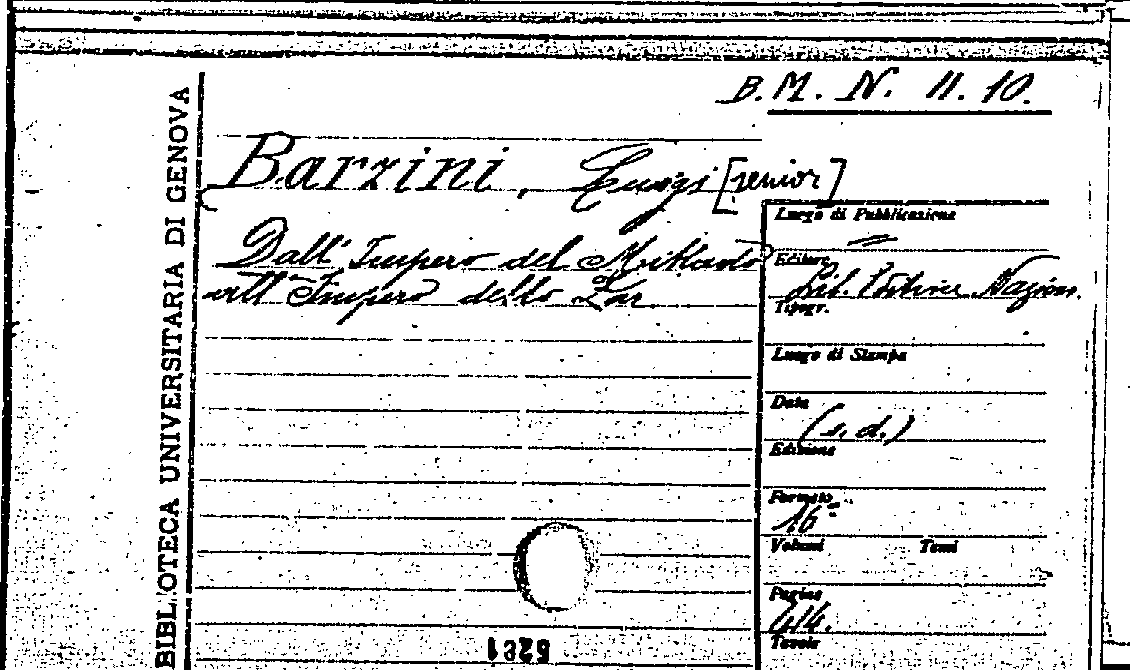 B. M. N. II. 10.
BIBLIOTECA UNIVERSITARIA DI GENOVA
Barzini, Luigi [senior]
Dall'Impero del Mikado
all'Impero dello Zar
Luogo di Pubblicazione
Editore
Lib. Nazion.
Tipogr.
Luogo di Stampa
Data
(s. d.)
Edizione
Formato
16º
Volumi Tomi
Pagine
414.
Tavole